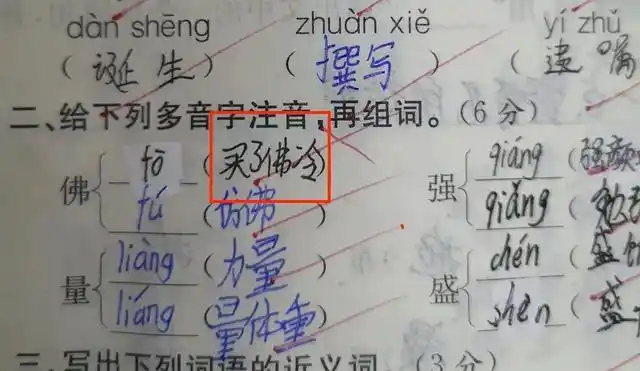 dàn shēng zhuàn xiě yí zhǔ
( 诞生 ) ( 撰写 ) ( 遗嘱
二、给下列多音字注音,再组词。(6分)
佛 fō (买了佛冷) 强 qiáng (强颜
fú (仿佛) qiǎng (
量 liàng (力量) 盛 chén (盛
liáng (量体重) shèn (盛
三、写出下列词语的近义词。(3分)